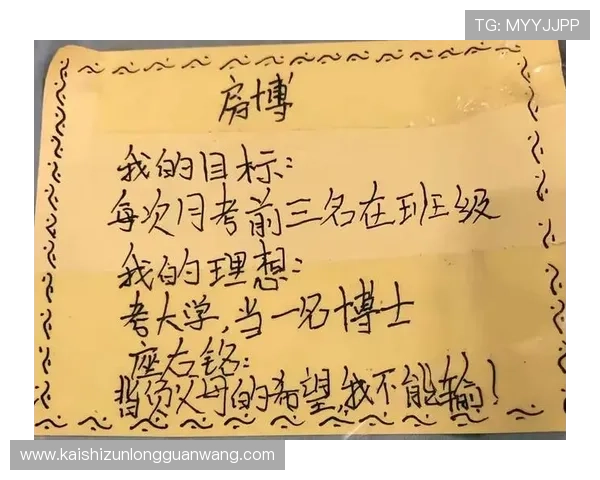 TG: MYYJJPP
房博
我的目标：
每次月考前三名在班级
我的理想：
考大学，当一名博士
座右铭：
背负父母的希望，我不能输！
www.kaishizunlongguanwang.com